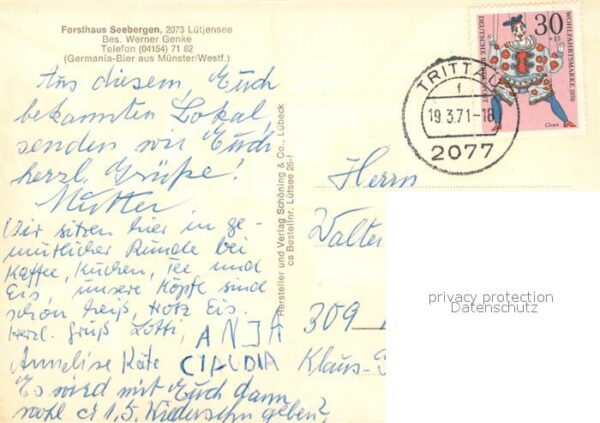 Forsthaus Seebergen, 2073 Lütjensee
Bes. Werner Genke
Telefon (04154) 71 82
(Germania-Bier aus Münster/Westf.)
Aus diesem, Euch
bekannten Lokal,
senden wir Euch
herzl. Grüße!
Mutter
Wir sitzen hier in ge-
mütlicher Runde bei
Kaffee, Kuchen, Tee und
Eis, unsere Köpfe sind
schon heiß, trotz Eis.
Herzl. Gruß Lotti, ANJA
Annelise Käte CLAUDIA
Es wird mit Euch dann
wohl 1.5. Wiedersehn geben?
Hersteller und Verlag Schöning & Co., Lübeck
ca Bestellnr. Lütsee 26-f
TRITTAU
f
19.3.71-18
2077
30
+15
WOHLFAHRTSMARKE 1970
DEUTSCHE BUNDESPOST
Clown
Herrn
Walter
309
Klaus-
privacy protection
Datenschutz